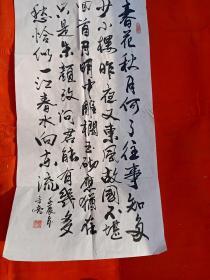 春花秋月何了往事知多
少小楼昨夜又东风故国不堪
回首月明中雕栏玉砌应犹在
只是朱颜改问君能有几多
愁恰似一江春水向东流